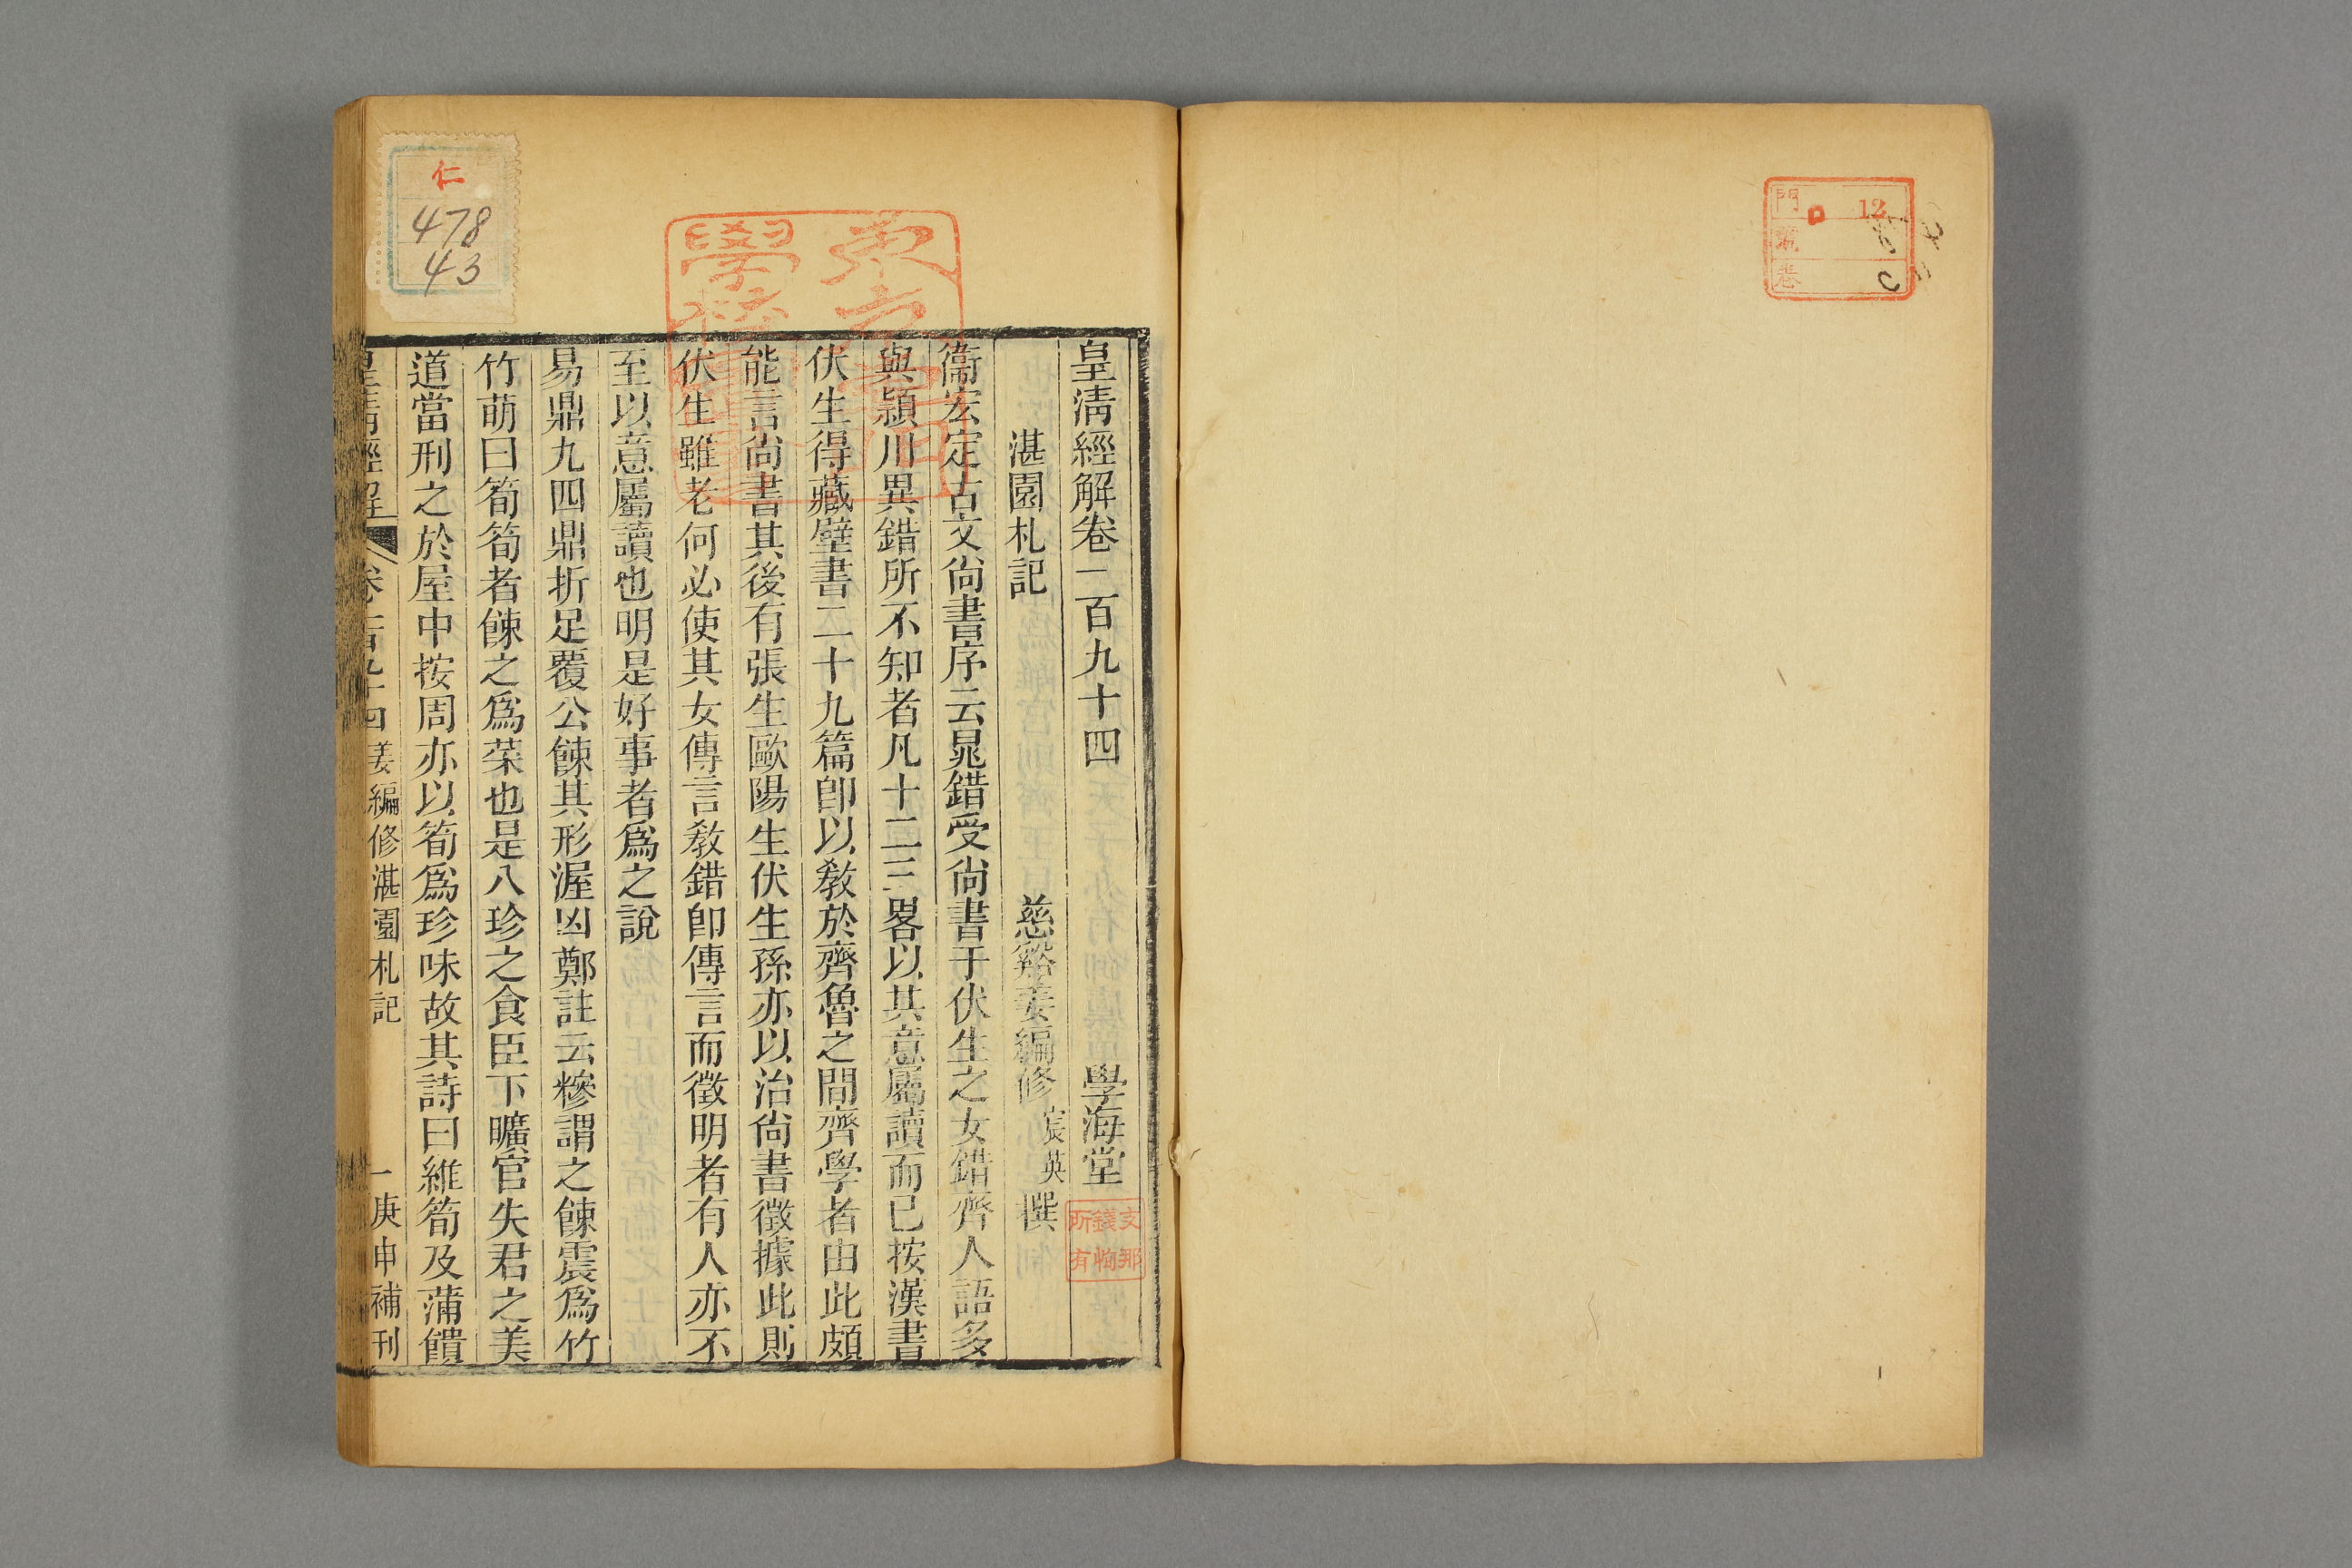 皇淸經解卷一百九十四 學海堂
湛園札記 慈谿姜編修宸英撰
衞宏定古文尙書序云鼂錯受尙書于伏生之女錯齊人語多
與潁川異錯所不知者凡十二三畧以其意屬讀而已按漢書
伏生得藏壁書二十九篇卽以敎於齊魯之間齊學者由此頗
能言尙書其後有張生歐陽生伏生孫亦以治尙書徵據此則
伏生雖老何必使其女傳言敎錯卽傳言而徵明者有人亦不
至以意屬讀也明是好事者爲之說
易鼎九四鼎折足覆公餗其形渥凶鄭註云糝謂之餗震爲竹
竹萌曰筍筍者餗之爲菜也是八珍之食臣下曠官失君之美
道當刑之於屋中按周亦以筍爲珍味故其詩曰維筍及蒲饋
皇淸經解 卷一百九十四 姜編修湛園札記 一 庚申補刊
仁
478
43
支那
錢恂
所有
門
號
卷
12